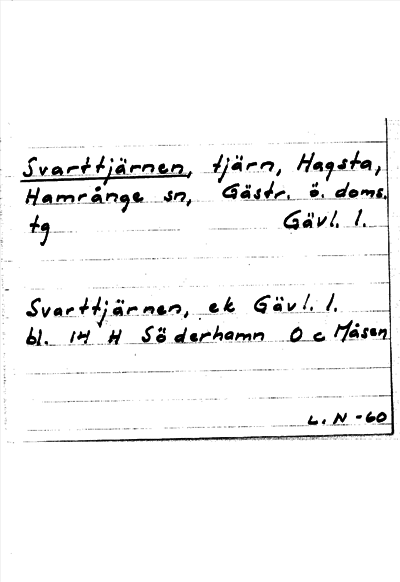 Svarttjärnen, tjärn, Hagsta,
Hamrånge sn, Gästr. ö. doms.
tg Gävl. l.
Svarttjärnen, ek Gävl. l.
bl. 14 H Söderhamn 0 c Måsen
L. N -60